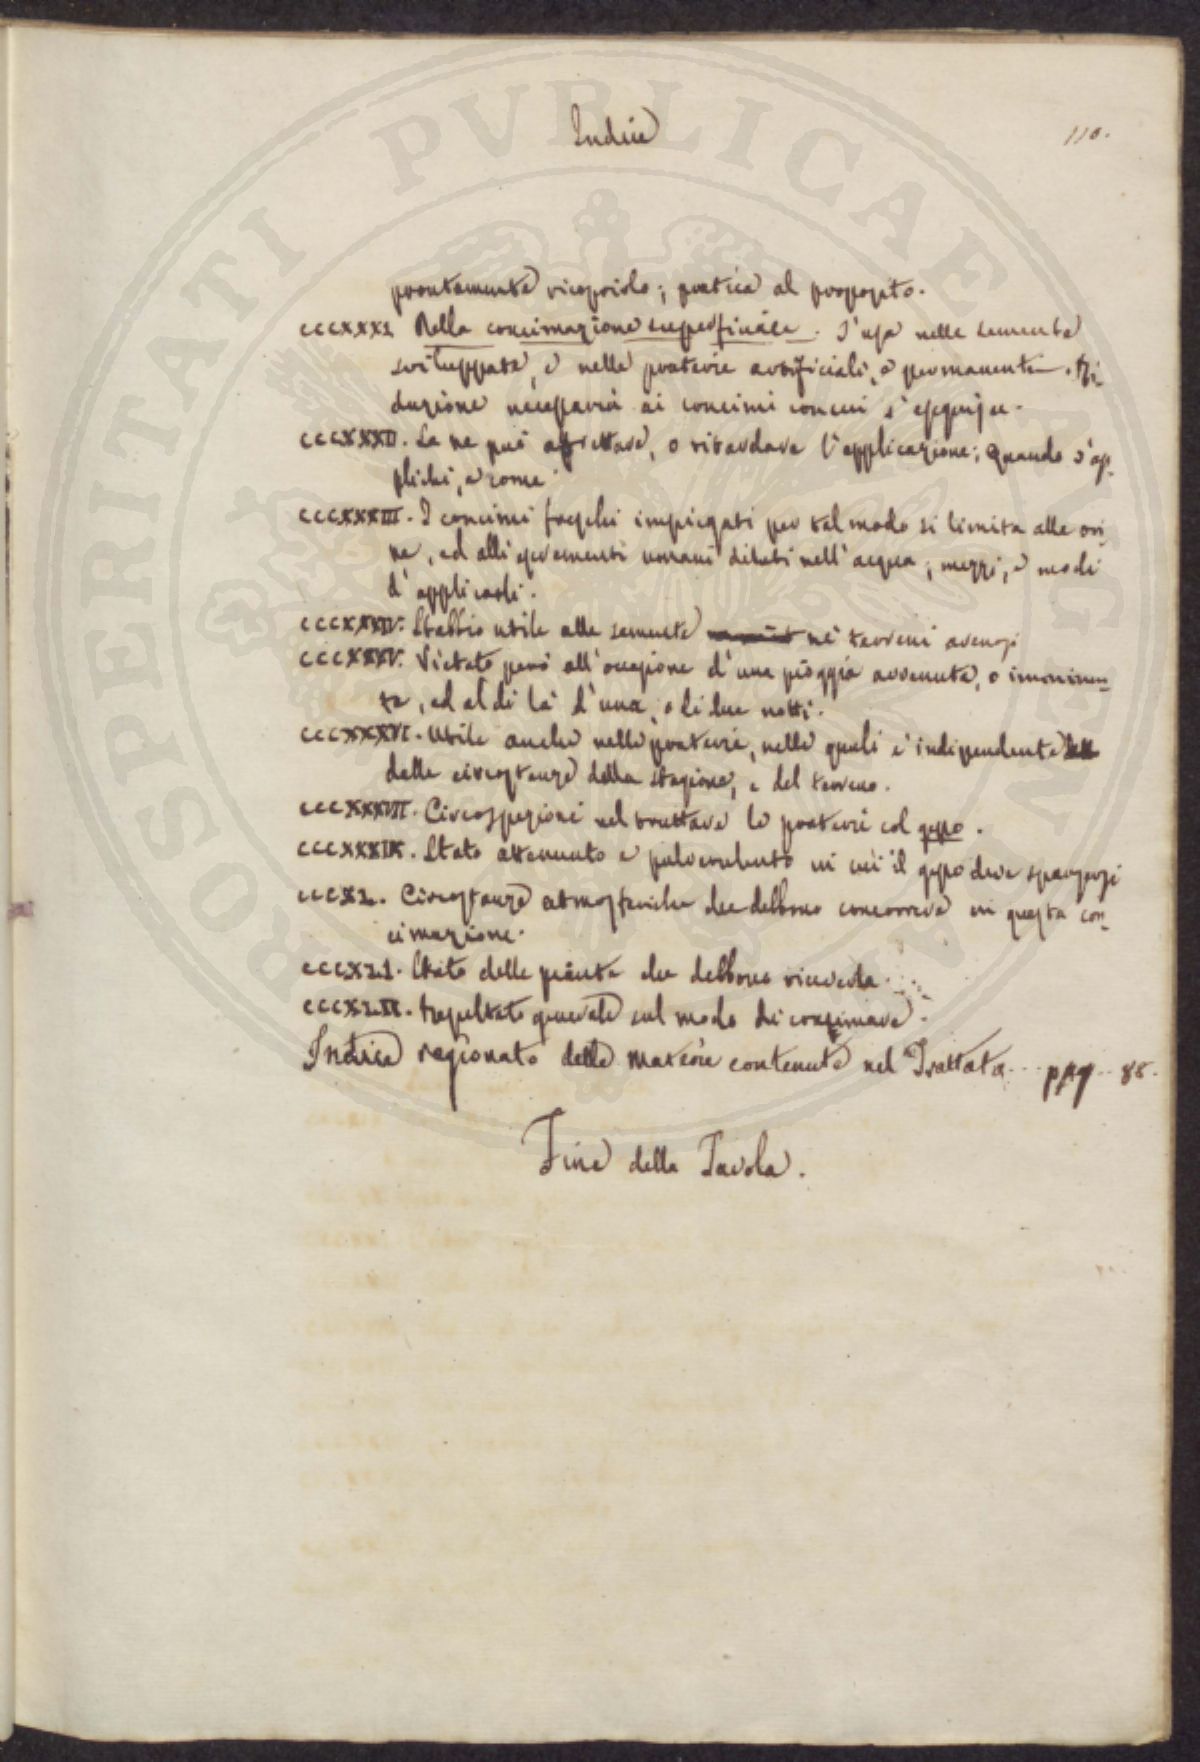 Indice
110.
prontamente ricoprirlo; pratica al proposito.
CCCXXXI. Della concimazione superficiale. S'usa nelle semente
sviluppate, e nelle praterie artificiali, e permanenti. Ri-
duzione necessaria ai concimi con cui s'eseguisce.
CCCXXXII. Se ne può affrettare, o ritardare l'applicazione; Quando s'ap-
plichi, e come.
CCCXXXIII. I concimi freschi impiegati per tal modo si limita alle ori-
ne, ed alli escrementi umani diluti nell'acqua; mezzi, e modi
d'applicarli.
CCCXXXIV. Stabbio utile alle semente ne' terreni arenosi
CCCXXXV. Vietato però all'occasione d'una pioggia avvenuta, o imminen-
te, ed al di là d'una, o di due notti.
CCCXXXVI. Utile anche nelle praterie, nelle quali è indipendente
dalle circostanze della stagione, e del terreno.
CCCXXXVII. Circospezioni nel trattare le praterie col gesso.
CCCXXXIX. Stato attenuato e pulverulento in cui il gesso deve spargersi
CCCXL. Circostanze atmosferiche che debbono concorrere in questa con-
cimazione.
CCCXLI. Stato delle piante che debbono riceverla.
CCCXLII. Risultato generale sul modo di concimare.
Indice ragionato delle materie contenute nel Trattato... pag.. 88.
Fine della Tavola.
PROSPERITATI PVBLICAE AVGENDAE